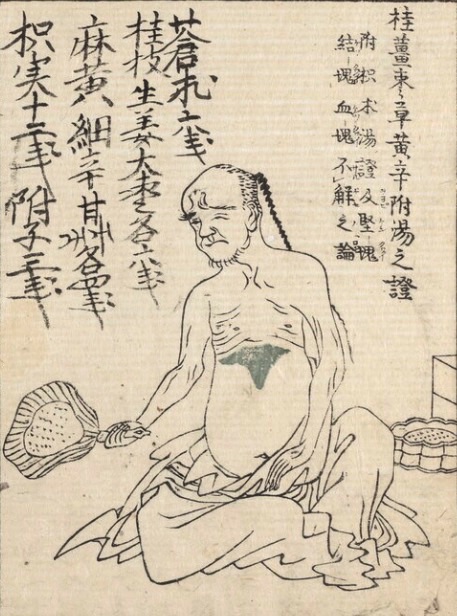 桂薑棗草黄辛附湯之證
附枳朮湯證及堅塊
結塊血塊不解之論
蒼朮六戔
桂枝生姜大棗各六戔
麻黄細辛甘艸各四戔
枳実十二戔附子三戔